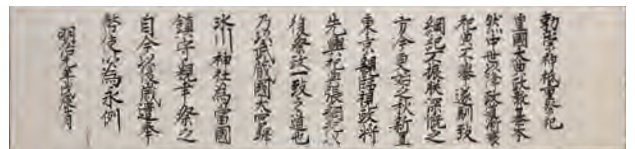 勅崇神祇重祭祀
皇國大典政教基本
然中世以降政道漸衰
祀典不舉遂馴致
綱紀不振朕深慨之
方今更始之秋新置
東京親臨視政將
先興祀典張綱紀以
復祭政一致之道也
乃以武蔵國大宮驛
氷川神社為當國
鎮守親幸祭之
自今以後歳遣奉
幣使以為永例
明治元年戊辰十月